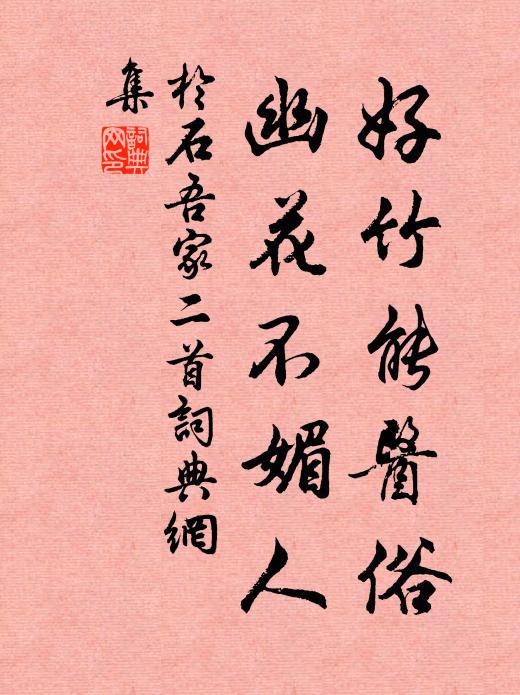 好竹能醫俗
幽花不媚人
於石吾家二首詞典網
集
詞典網印